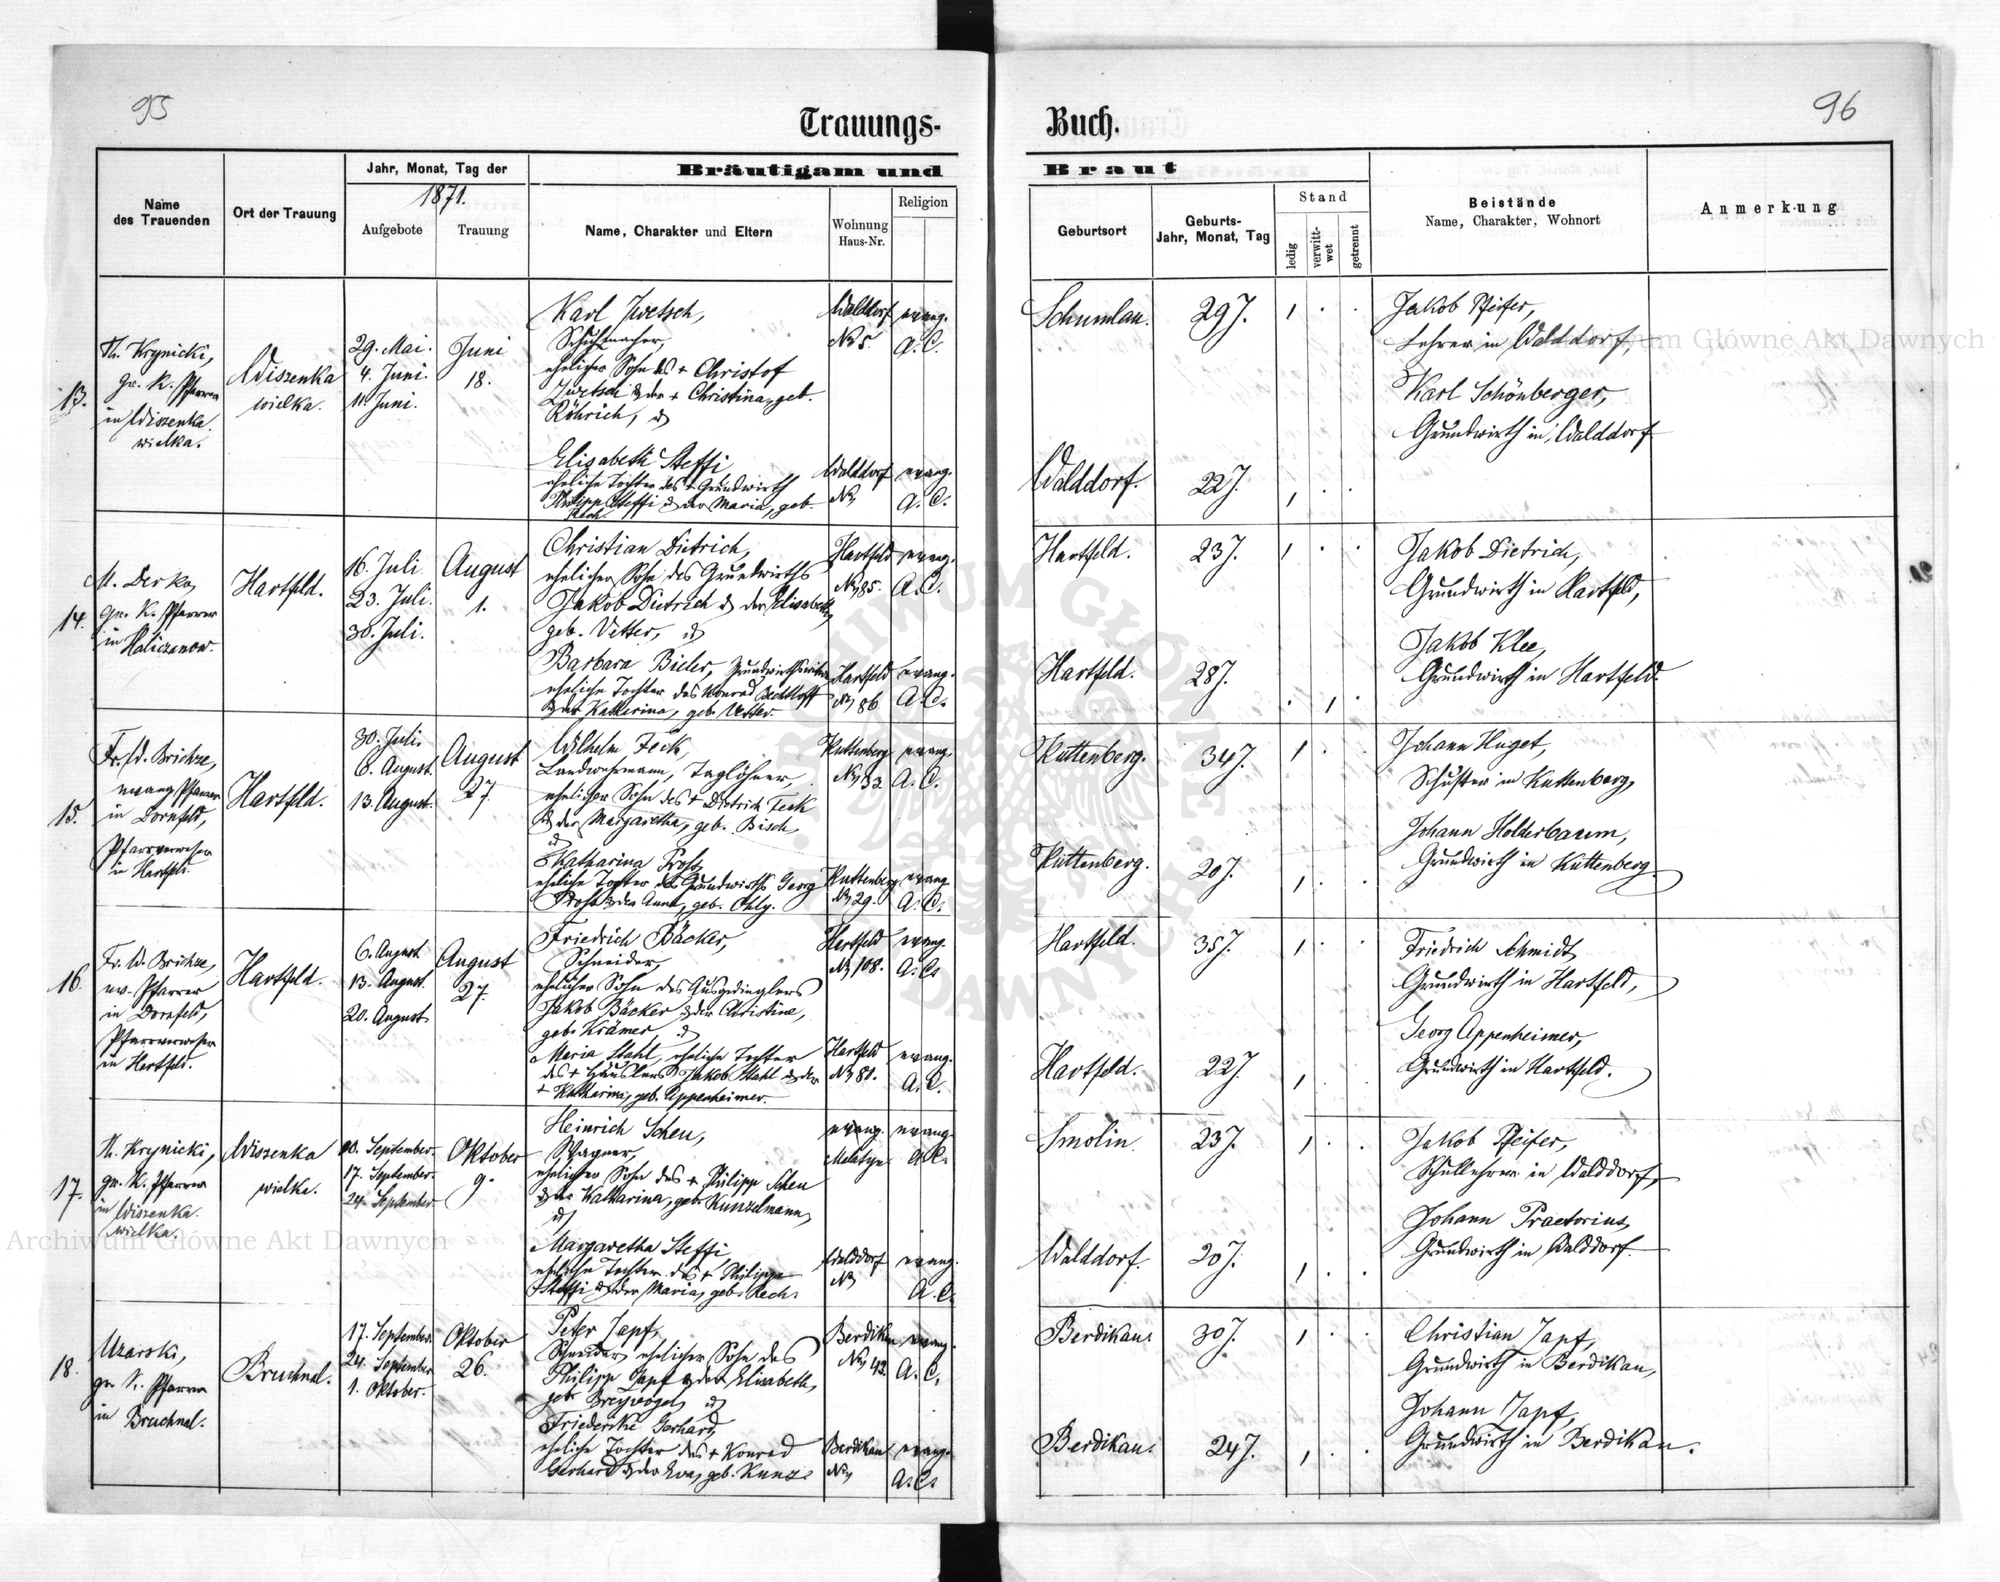 95
96
Trauungs-
Buch.
Name
des Trauenden
Ort der Trauung
Jahr, Monat, Tag der
1871.
Aufgebote
Trauung
Bräutigam und
Braut
Name, Charakter und Eltern
Wohnung
Haus-Nr.
Religion
Geburtsort
Geburts-
Jahr, Monat, Tag
Stand
ledig
verwitt-
wet
getrennt
Beistände
Name, Charakter, Wohnort
Anmerkung
13.
Th. Krynicki,
gr. K. Pfarrer
in Wiszenka
wielka.
Wiszenka
wielka.
29. Mai.
4. Juni.
11. Juni.
Juni
18.
Karl Zwetsch,
Schuhmacher,
ehelicher Sohn des + Christof
Zwetsch & der + Christina, geb.
Röhrich, &
Walddorf
No 5.
evang.
A. C.
Schumlau.
29 J.
Jakob Pfeifer,
Lehrer in Walddorf,
Karl Schönberger,
Grundwirth in Walddorf
Elisabeth Steffi,
eheliche Tochter des + Grundwirth
Philipp Steffi & der Maria, geb.
Rech.
Walddorf
No
evang.
A. C.
Walddorf.
22 J.
14.
M. Derko,
gr. K. Pfarrer
in Haliczanow.
Hartfeld.
16. Juli
23. Juli.
30. Juli.
August
1.
Christian Dietrich,
ehelicher Sohn des Grundwirths
Jakob Dietrich & der Elisabeth,
geb. Vetter, &
Hartfeld
No 85.
evang.
A. C.
Hartfeld.
23 J.
Jakob Dietrich,
Grundwirth in Hartfeld,
Jakob Klee,
Grundwirth in Hartfeld.
Barbara Bieler,
eheliche Tochter des Konrad Bechtloff
& der Katherina, geb. Vetter.
Hartfeld
No 86
evang.
A. C.
Hartfeld.
28 J.
15.
Fr. W. Brichze,
evang. Pfarrer
in Dornfeld,
Pfarrverweser
in Hartfeld.
Hartfeld.
30. Juli.
6. August.
13. August.
August
27.
Wilhelm Feck,
Landwehrmann, Taglöhner,
ehelicher Sohn des + Dietrich Feck
& der Margaretha, geb. Bisch,
&
Kuttenberg
No 32
evang.
A. C.
Kuttenberg.
34 J.
Johann Huget,
Schuster in Kuttenberg,
Johann Holderbaum,
Grundwirth in Kuttenberg
Katharina Prost,
eheliche Tochter des Grundwirths Georg
Prost & der Anna, geb. Ohly.
Kuttenberg
No 29.
evang.
A. C.
Kuttenberg.
20 J.
16.
Fr. W. Brichze,
ev. Pfarrer
in Dornfeld,
Pfarrverweser
in Hartfeld.
Hartfeld.
6. August
13. August.
20. August.
August
27.
Friedrich Bäcker,
Schneider,
ehelicher Sohn des Ausgedinglers
Jakob Bäcker & der Christine,
geb. Krämer &
Hartfeld
No 108.
evang.
A. C.
Hartfeld.
35 J.
Friedrich Schmidt,
Grundwirth in Hartfeld,
Georg Appenheimer,
Grundwirth in Hartfeld.
Maria Stahl, eheliche Tochter
des + Häuslers Jakob Stahl & der
+ Katharina, geb. Appenheimer.
Hartfeld
No 81.
evang.
A. C.
Hartfeld.
22 J.
17.
Th. Krynicki,
gr. K. Pfarrer
in Wiszenka
wielka.
Wiszenka
wielka.
10. September.
17. September.
24. September.
Oktober
9.
Heinrich Scheu,
Wagner,
ehelicher Sohn des + Philipp Scheu
& der Katharina, geb. Kunzelmann,
&
evang.
A. C.
Smolin.
23 J.
Jakob Pfeifer,
Schullehrer in Walddorf,
Johann Praetorius,
Grundwirth in Walddorf.
Margaretha Steffi,
eheliche Tochter des + Philipp
Steffi & der Maria, geb. Rech.
Walddorf
No
evang.
A. C.
Walddorf.
20 J.
18.
Uzarski,
gr. K. Pfarrer
in Bruchnal.
Bruchnal.
17. September.
24. September
1. Oktober.
Oktober
26.
Peter Zapf,
Schneider, ehelicher Sohn des
Philipp Zapf & der Elisabeth,
geb. Breyvogel, &
Berdikau
No 42.
evang.
A. C.
Berdikau.
30 J.
Christian Zapf,
Grundwirth in Berdikau,
Johann Zapf,
Grundwirth in Berdikau.
Friederike Gerhard,
eheliche Tochter des + Konrad
Gerhard & der Eva, geb. Kunz.
Berdikau
No
evang.
A. C.
Berdikau.
24 J.
Archiwum Główne Akt Dawnych
Archiwum Główne Akt Dawnych
ARCHIWUM GŁÓWNE AKT DAWNYCH